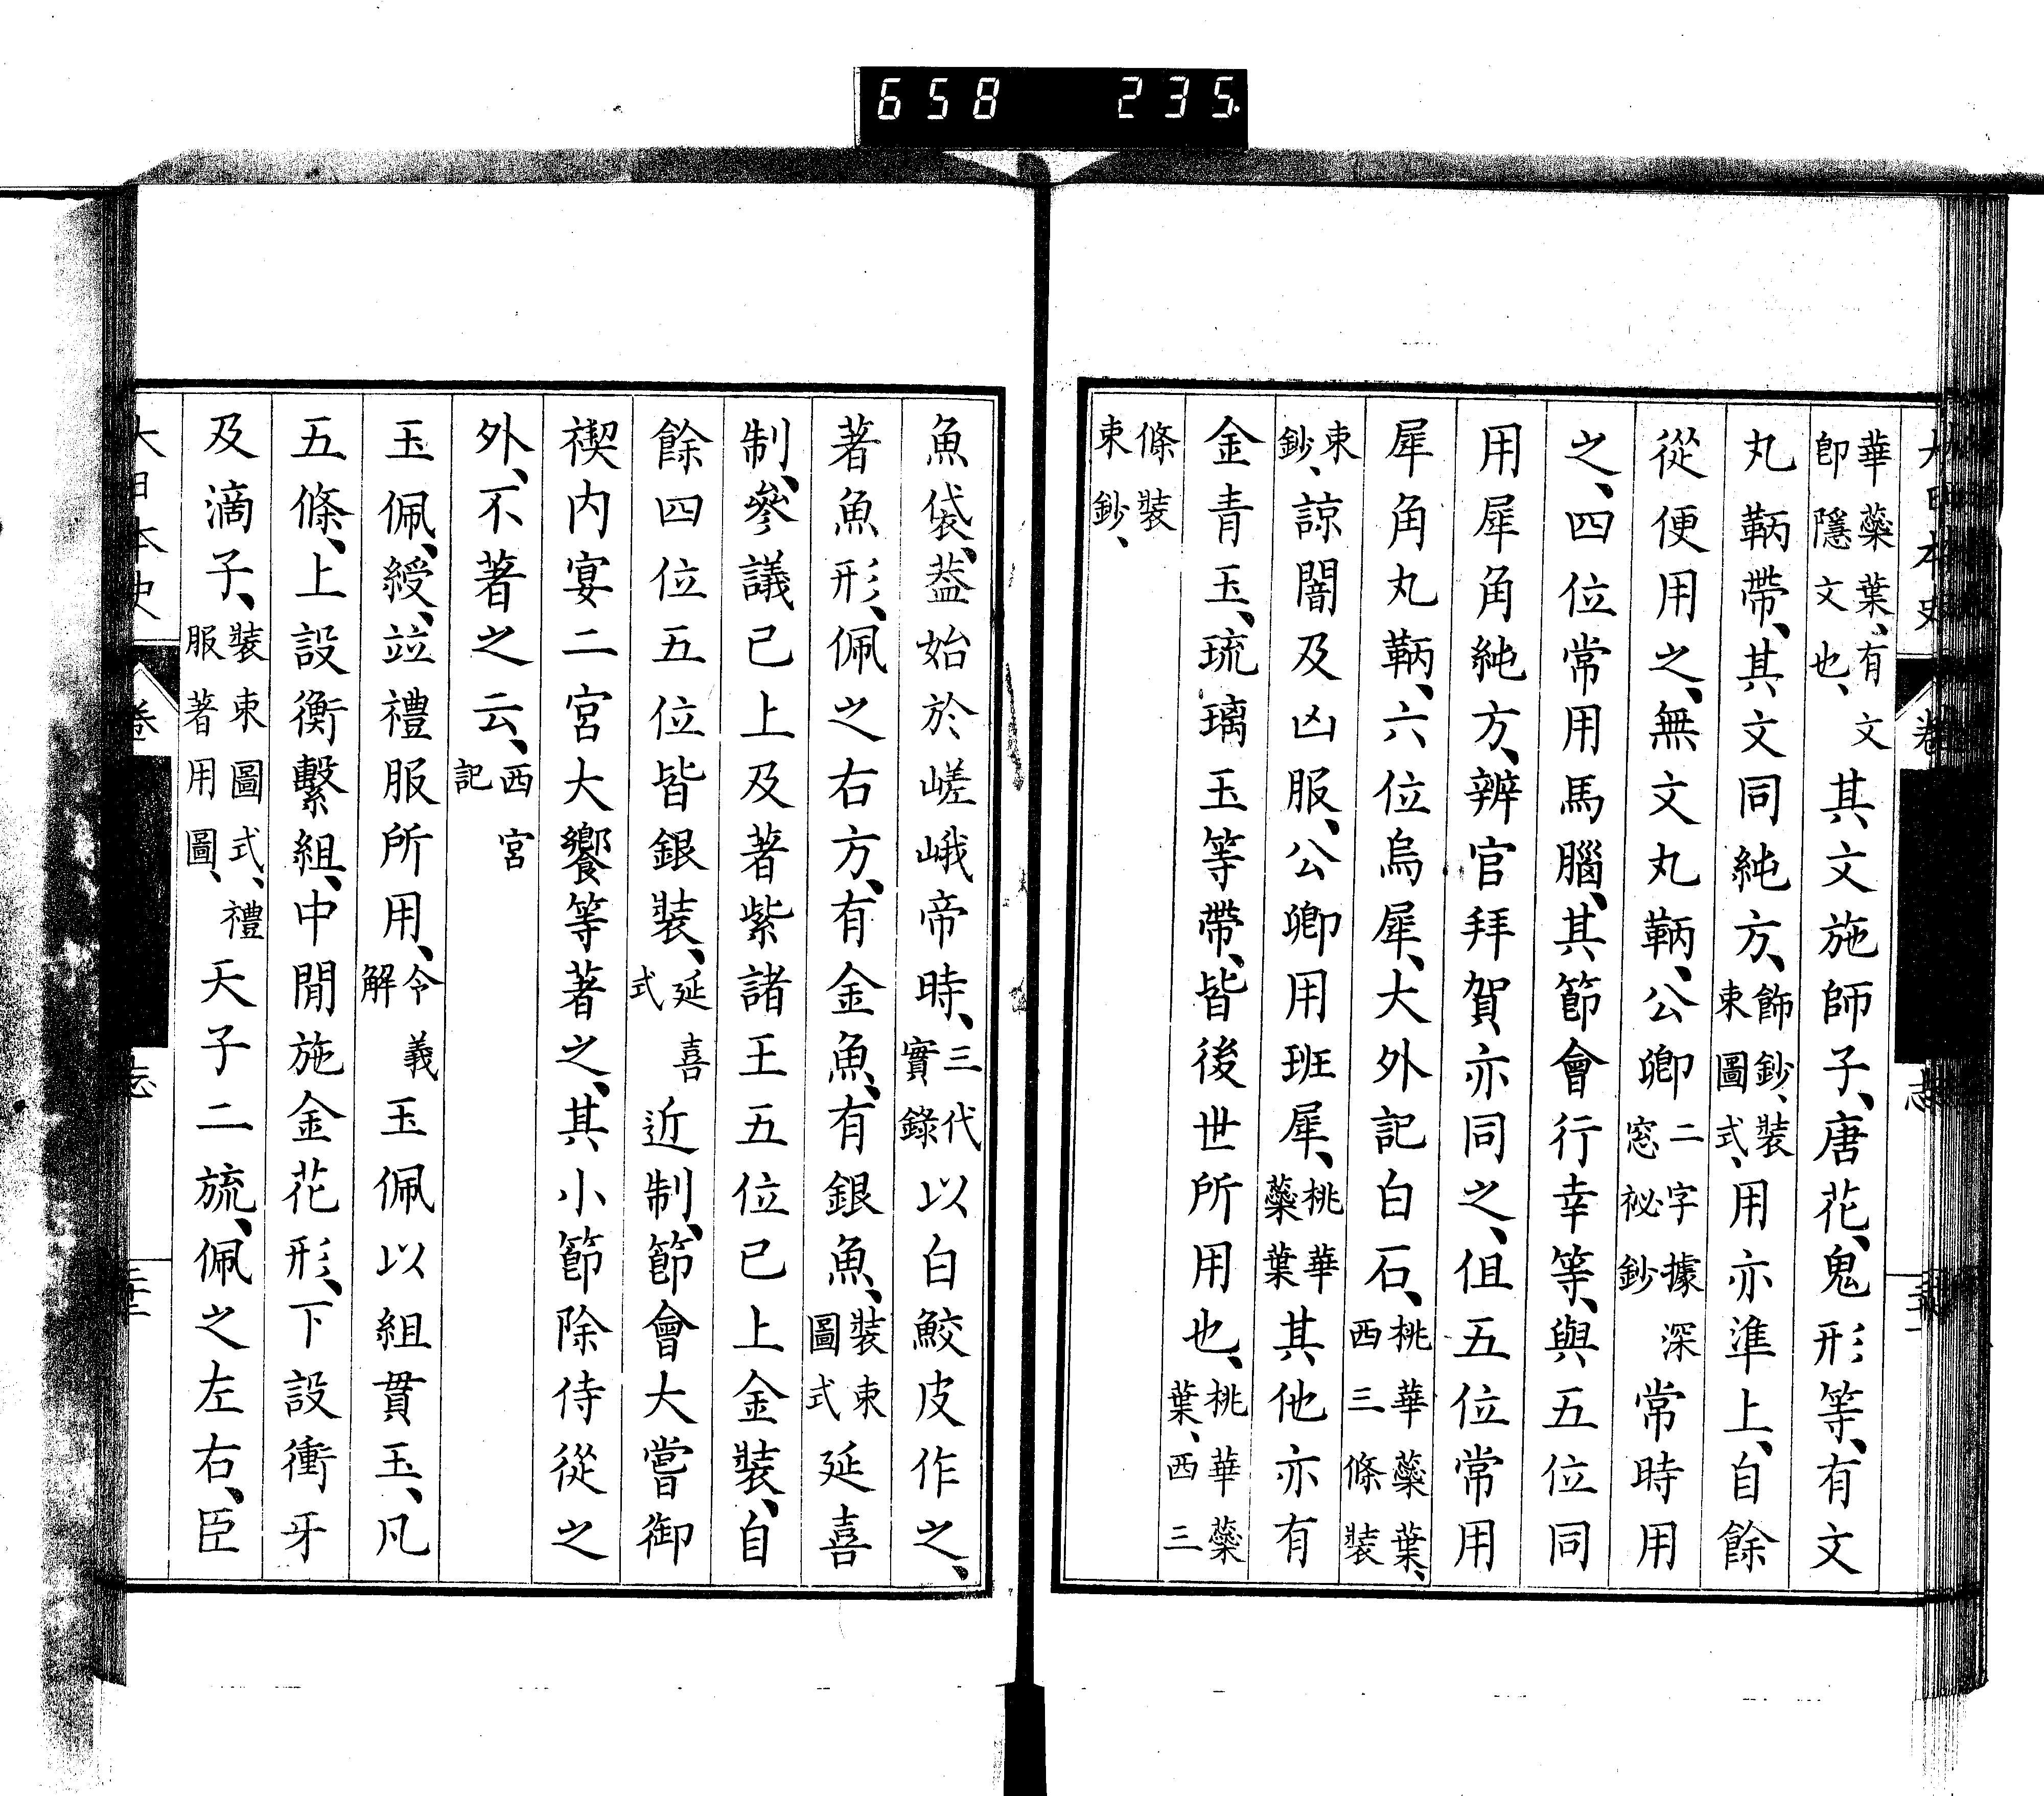 658 235.
華蘂葉、有文
卽隱文也、
其文施師子、唐花、鬼形等、有文
丸鞆帶、其文同純方、飾鈔、裝束圖式、用亦準上、自餘
從便用之、無文丸鞆、公卿二字據深窓祕鈔常時用
之、四位常用馬腦、其節會行幸等、與五位同
用犀角純方、辨官拜賀亦同之、但五位常用
犀角丸鞆、六位烏犀、大外記白石、桃華蘂葉、西三條裝
束鈔、諒闇及凶服、公卿用班犀、桃華蘂葉其他亦有
金青玉、琉璃玉等帶、皆後世所用也、桃華蘂葉、西三
條裝束鈔、
魚袋、葢始於嵯峨帝時、三代實錄以白鮫皮作之、
著魚形、佩之右方、有金魚、有銀魚、裝束圖式延喜
制、參議已上及著紫諸王五位已上金裝、自
餘四位五位皆銀裝、延喜式近制、節會大嘗御
禊内宴二宮大饗等著之、其小節除侍從之
外、不著之云、西宮記
玉佩、綬、竝禮服所用、令義解玉佩以組貫玉、凡
五條、上設衡繫組、中閒施金花形、下設衝牙
及滴子、裝束圖式、禮服著用圖、天子二旒、佩之左右、臣
大日本史
卷
志